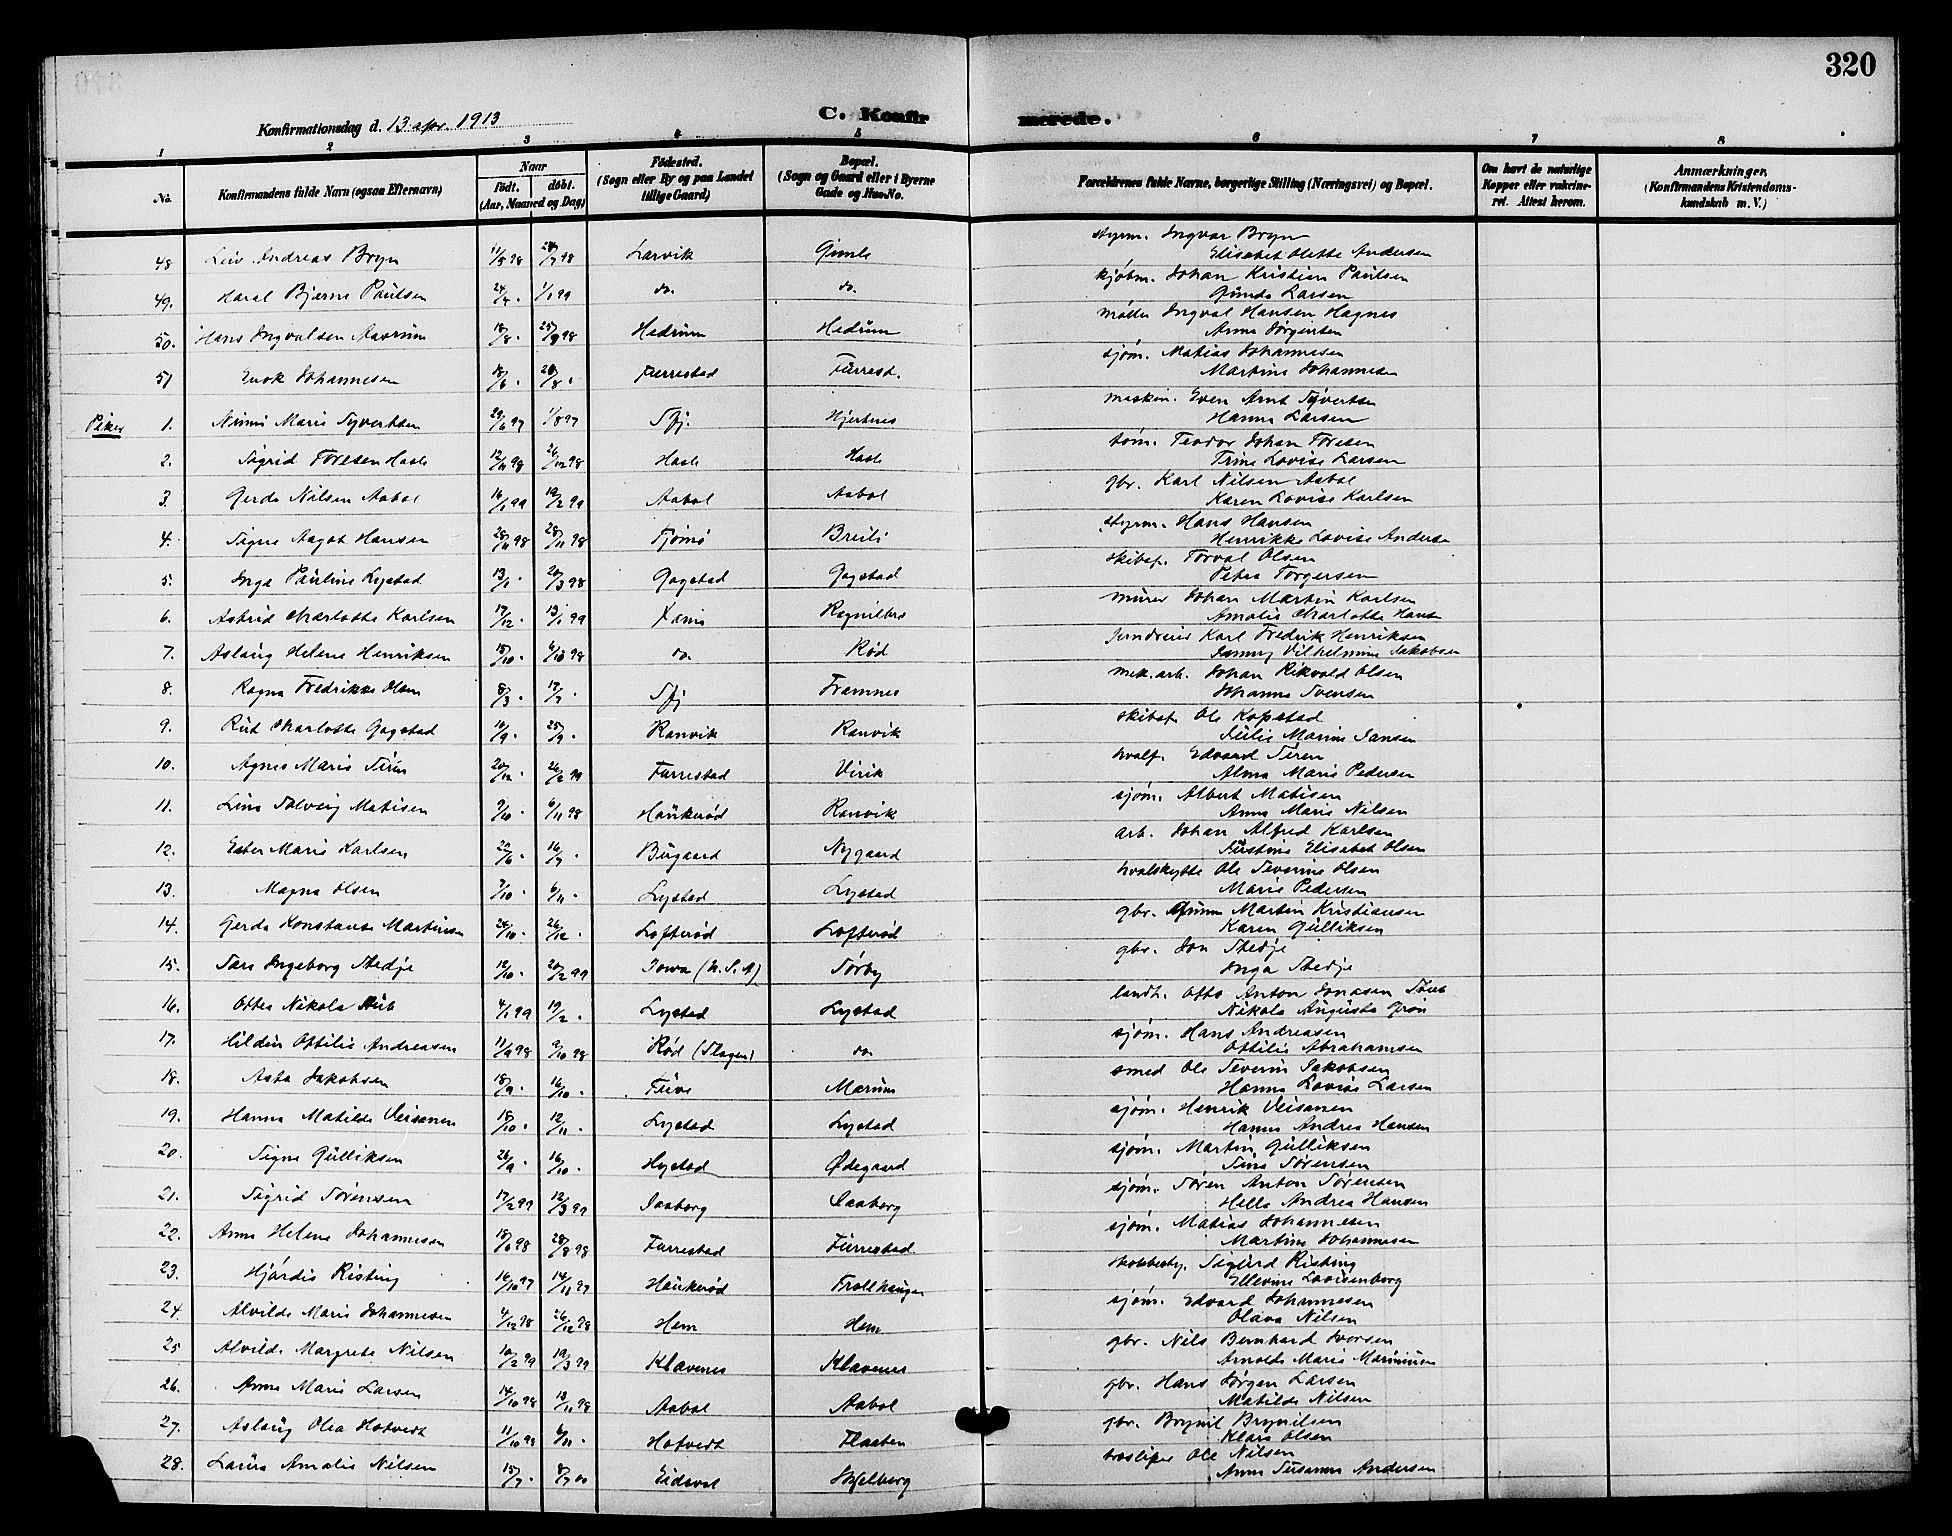 320
Konfirmationsdag d. 13 apr. 1913
C. Konfirmerede.
1 2 3 4 5 6 7 8
No.
Konfirmandens fulde Navn (ogsaa Efternavn)
Naar
født. døbt.
(Aar, Maaned og Dag)
Fødested.
(Sogn eller By og paa Landet
tillige Gaard)
Bopæl.
(Sogn og Gaard eller i Byerne
Gade og Hus-No.
Forældrenes fulde Navne, borgerlige Stilling (Næringsvei) og Bopæl.
Om havt de naturlige
Kopper eller vakcine-
ret. Attest herom.
Anmærkninger.
(Konfirmandens Kristendoms-
kundskab m. V.)
48 Leiv Andreas Bryn 11/5 98 24/7 98 Larvik Gimle styrm. Ingvar Bryn
Elisabet Olette Andersen
49. Haral Bjerne Paulsen 24/4 . 1/1 99 do. do. kjøbm. Johan Kristian Paulsen
Gunda Larsen
50. Hans Ingvalsen Aavrum 18/8 . 25/9 98 Hedrum Hedrum møller Ingval Hansen Hagnes
Anna Jørgensen
51 Enok Johannesen 18/6 . 28/8 . Furrestad Furrest. sjøm. Matias Johannesen
Martine Johannesen
Piker 1. Minni Marie Syvertsen 29/6 97 1/8 97 Sfj. Hjertnes maskin. Even Arnt Syvertsen
Hanna Larsen
2. Sigrid Toresen Hasle 12/11 98 26/12 98 Hasle Hasle tøm. Teodor Johan Toresen
Trine Lovise Larsen
3. Gerda Nilsen Aabol 16/1 99 19/2 99 Aabol Aabol gbr. Karl Nilsen Aabol
Karen Lovise Karlsen
4. Signe Aagot Hansen 28/4 98 28/11 98 Tjømø Breili styrm. Hans Hansen
Henrikke Lovise Anderse
5. Inga Pauline Lystad 13/1 . 20/3 98 Gogstad Gogstad skibsf. Torval Olsen
Petra Torgersen
6. Astrid Charlotte Karlsen 17/12 . 13/1 99 Ragnilbro murer Johan Martin Karlsen
Amalie Charlotte Hans
7. Aslaug Helene Henriksen 15/10 . 6/10 98 do. Rød Karl Fredrik Henriksen
Fanny Vilhelmine Jakobsen
8. Ragna Fredrikke Olsen 8/3 . 17/7 . Sfj Framnes mek. arb. Johan Rikvald Olsen
Johanne Svensen
9. Rut Charlotte Gogstad 10/9 . 25/9 . Ranvik Ranvik skibsf. Ole Kopstad
Julie Marine Jansen
10. Agnes Marie Siren 20/12 . 26/2 99 Furrestad Virik hvalf. Edvard Siren
Alma Marie Pedersen
11. Lina Solveig Matisen 9/10 . 6/11 98 Haukerød Ranvik sjøm. Albert Matisen
Anna Marie Nilsen
12. Ester Marie Karlsen 22/6 . 16/7 . Bugaard Nygaard arb. Johan Alfred Karlsen
Justine Elisabet Olsen
13. Magna Olsen 7/10 . 6/11 . Lystad Lystad hvalskytte Ole Severine Olsen
Marie Pedersen
14. Gerda Konstanse Martinsen 24/10 . 26/12 . Lofterød Lofterød gbr. Martin Kristiansen
Karen Gulliksen
15. Sara Ingeborg Stedje 12/10 . 20/2 99 Iowa (U.S.A) Sørby gbr. Jon Stedje
Inga Stedje
16. Ottea Nikola 4/1 99 19/2 . Lystad Lystad landh. Otto Anton Jonasen
Nikola Augusta Grøn
17. Hildur Ottilie Andreasen 11/9 98 9/10 98 Rød (Slagen) do sjøm. Hans Andreasen
Ottilie Abrahamsen
18. Asta Jakobsen 18/9 . 16/10 . Tuve Marum smed Ole Severin Jakobsen
Hanna Lovise Larsen
19. Hanna Matilde Veisanen 18/10 . 12/11 . Lystad Lystad sjøm. Henrik Veisanen
Hanna Andrea Hansen
20. Signe Gulliksen 26/9 . 16/10 . Hystad Ødegaard sjøm. Martin Gulliksen
Tina Sørensen
21. Sigrid Sørensen 17/2 99 12/3 99 Laaborg sjøm. Søren Anton Sørensen
Helle Andrea Hansen
22. Anna Helene Johannesen 18/6 98 28/8 98 Furrestad Furrestad sjøm. Matias Johannesen
Martine Johannesen
23. Hjørdis Risting 16/10 97 14/11 97 Haukerød Trollhaugen Sigurd Risting
Ellevine Lovisenborg
24. Alvilde Marie Johannesen 4/12 98 26/12 98 Hem Hem sjøm. Edvard Johannesen
Olava Nilsen
25 Alvilde Margrete Nilsen 10/2 99 19/3 99 Klavenes Klavenes gbr. Nils Bernhard Iversen
Arnolda Marie Marinusen
26. Anna Marie Larsen 14/10 98 13/11 98 Aabol Aabol gbr. Hans Jørgen Larsen
Matilde Nilsen
27. Aslaug Olea Hotvedt 11/10 99 6/11 . Hotvedt Flaaten gbr. Brynil Brynilsen
Klara Olsen
28. Laura Amalie Nilsen 15/7 . 8/7 00 Eidsvol Skjelberg træsliper Ole Nilsen
Anna Susanna Andersen